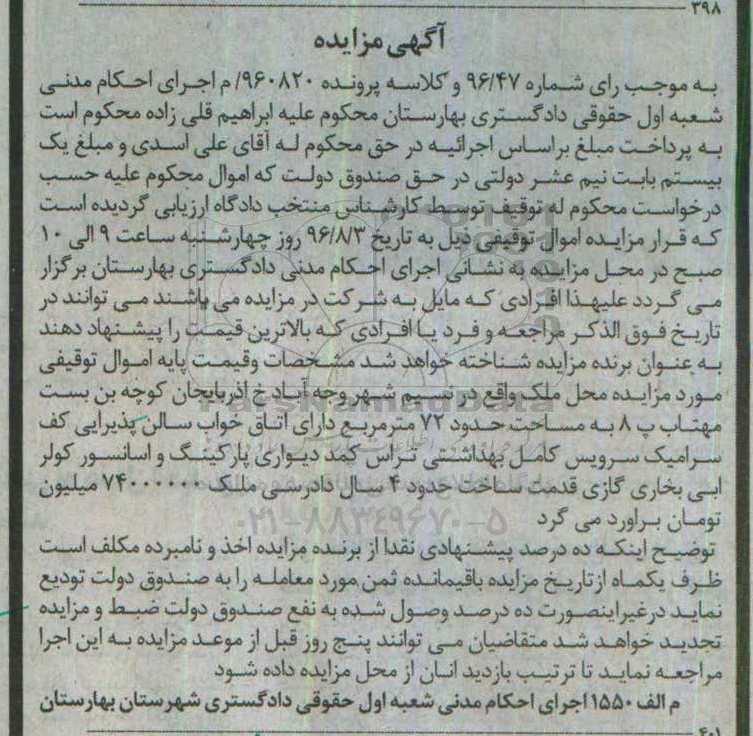 ۳۹۸
آگهی مزایده
به موجب رای شماره ۹۶/۴۷ و کلاسه پرونده ۹۶۰۸۲۰/ م اجرای احکام مدنی
شعبه اول حقوقی دادگستری بهارستان محکوم علیه ابراهیم قلی زاده محکوم است
به پرداخت مبلغ براساس اجرائیه در حق محکوم له آقای علی اسدی و مبلغ یک
بیستم بابت نیم عشر دولتی در حق صندوق دولت که اموال محکوم علیه حسب
درخواست محکوم له توقیف توسط کارشناس منتخب دادگاه ارزیابی گردیده است
که قرار مزایده اموال توقیفی ذیل به تاریخ ۹۶/۸/۳ روز چهارشنبه ساعت ۹ الی ۱۰
صبح در محل مزایده به نشانی اجرای احکام مدنی دادگستری بهارستان برگزار
می گردد علیهذا افرادی که مایل به شرکت در مزایده می باشند می توانند در
تاریخ فوق الذکر مراجعه و فرد یا افرادی که بالاترین قیمت را پیشنهاد دهند
به عنوان برنده مزایده شناخته خواهد شد مشخصات وقیمت پایه اموال توقیفی
مورد مزایده محل ملک واقع در نسیم شهر وجه آباد خ اذربایجان کوچه بن بست
مهتاب پ ۸ به مساحت حدود ۷۲ مترمربع دارای اتاق خواب سالن پذیرایی کف
سرامیک سرویس کامل بهداشتی تراس کمد دیواری پارکینگ و اسانسور کولر
ابی بخاری گازی قدمت ساخت حدود ۴ سال دادرسی ملک ۷۴۰۰۰۰۰۰ میلیون
تومان براورد می گرد
توضیح اینکه ده درصد پیشنهادی نقدا از برنده مزایده اخذ و نامبرده مکلف است
ظرف یکماه ازتاریخ مزایده باقیمانده ثمن مورد معامله را به صندوق دولت تودیع
نماید درغیراینصورت ده درصد وصول شده به نفع صندوق دولت ضبط و مزایده
تجدید خواهد شد متقاضیان می توانند پنج روز قبل از موعد مزایده به این اجرا
مراجعه نماید تا ترتیب بازدید انان از محل مزایده داده شود
م الف ۱۵۵۰ اجرای احکام مدنی شعبه اول حقوقی دادگستری شهرستان بهارستان
۴۰۱
ParsNamadData
۰۲۱-۸۸۳۴۹۶۷۰-۵